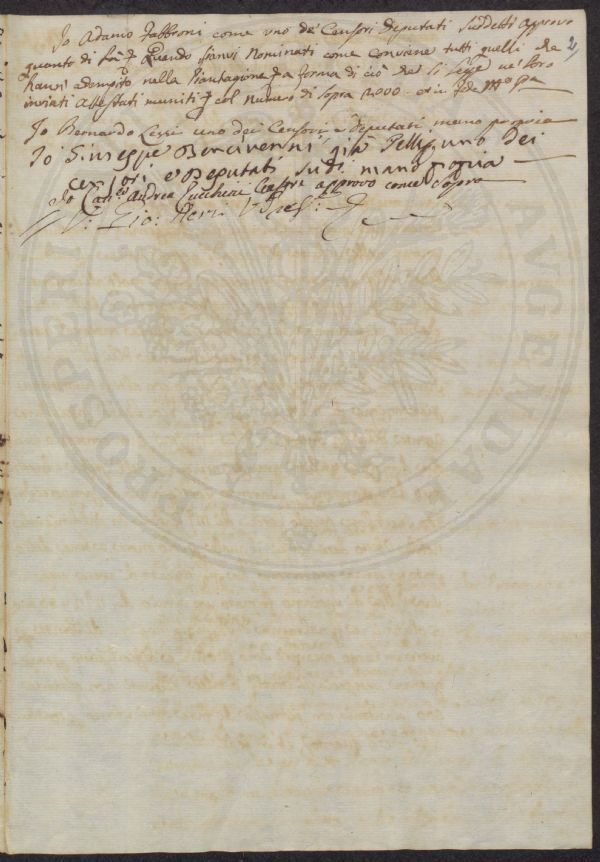 Io Adamo Fabbroni come uno de' Censori Deputati suddetti approvo
quanto di Quando sianvi Nominati come conviene tutti quelli che
hanno adempito nella Piantagione a forma di ciò che si legge ne' loro
inviati Attestati muniti col numero di sopra 2000
Io Bernardo Lessi uno dei Censori e deputati mano propria
Io Giuseppe Bencivenni già Pelli uno dei
Censori e Deputati sudi. mano propria
Io Andrea Zucchini Censore approvo come sopra
2
PROSPERI
AVGENDAE